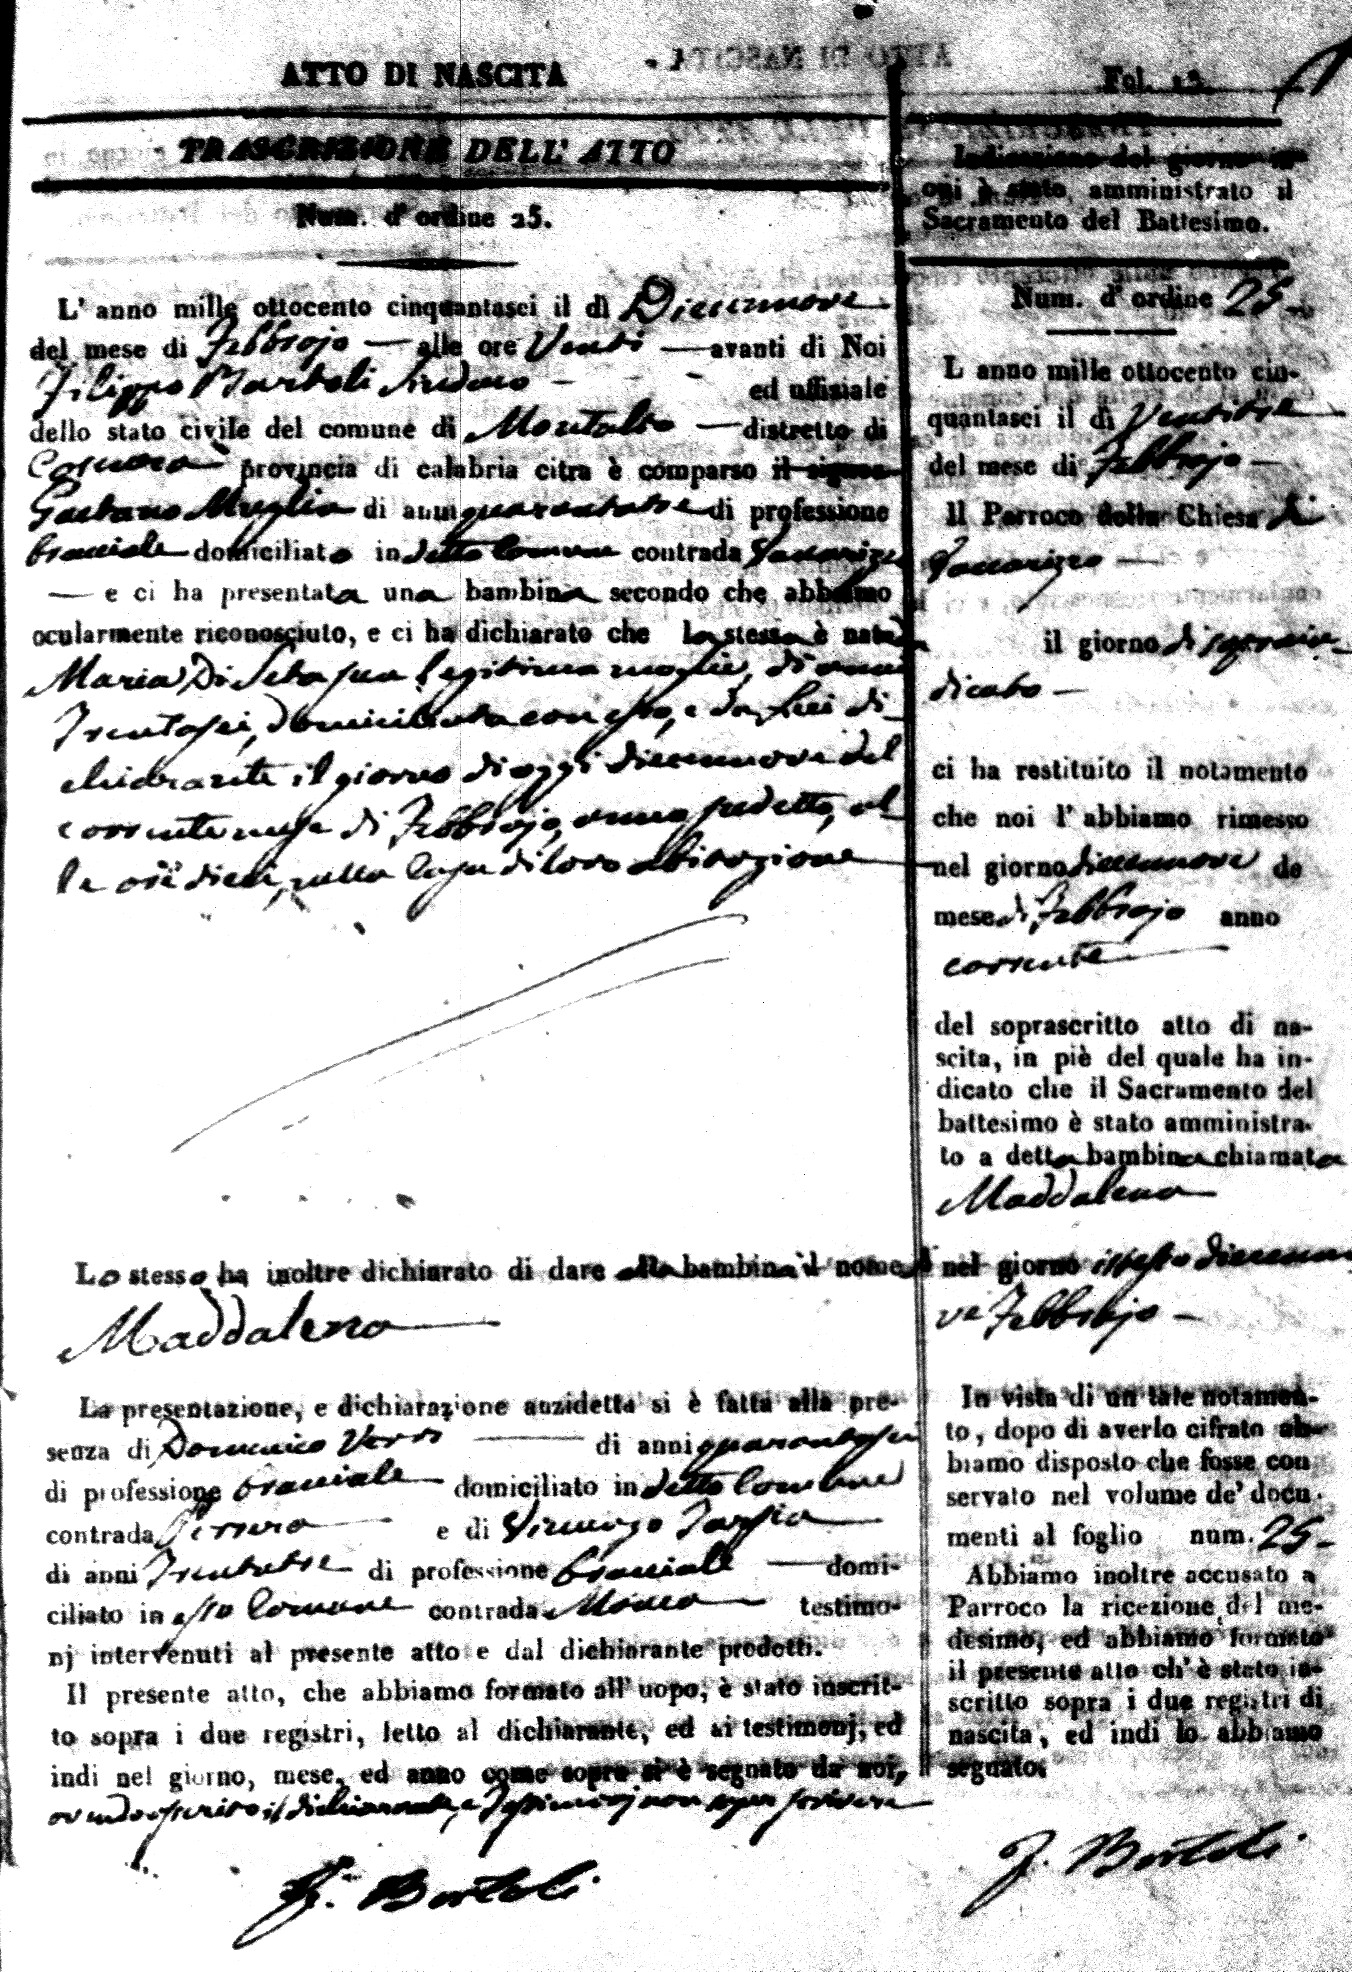 ATTO DI NASCITA
TRASCRIZIONE DELL' ATTO
Num. d' ordine 25.
L' anno mille ottocento cinquantasei il dì Diecennove
del mese di Febbrajo — alle ore Venti — avanti di Noi
Filippo Bartoli Sindaco — ed uffiziale
dello stato civile del comune di Montalto — distretto di
Cosenza provincia di calabria citra è comparso il signor
Gaetano Muglia di anni quarantatre di professione
bracciale domiciliato in detto Comune contrada Vaccarizzo
— e ci ha presentata una bambina secondo che abbiamo
ocularmente riconosciuto, e ci ha dichiarato che la stessa è nata da
Maria Di Seta sua legittima moglie, di anni
Trentasei, domiciliata con esso, e da lui di-
chiarante il giorno di oggi diecennove del
corrente mese di Febbrajo, anno sudetto, al-
le ore dieci, nella casa di loro abitazione
Lo stesso ha inoltre dichiarato di dare alla bambina il nome di
Maddalena
La presentazione, e dichiarazione anzidetta si è fatta alla pre-
senza di Domenico Verri — di anni quarantasei
di professione bracciale — domiciliato in detto Comune
contrada e di Vincenzo Tarsia
di anni Trentatre di professione bracciale — domi-
ciliato in esso Comune contrada testimo-
nj intervenuti al presente atto e dal dichiarante prodotti.
Il presente atto, che abbiamo formato all' uopo, è stato inscrit-
to sopra i due registri, letto al dichiarante, ed ai testimonj, ed
indi nel giorno, mese, ed anno come sopra si è segnato da noi,
avendo asserito il dichiarante, e Testimonj non saper scrivere
F. Bartoli
Fol. 13.
Indicazione del giorno in
cui è stato amministrato il
Sacramento del Battesimo.
Num. d' ordine 25
L anno mille ottocento cin-
quantasei il dì Ventitre
del mese di Febbrajo —
Il Parroco della Chiesa di
Vaccarizzo —
il giorno di sopra in-
dicato —
ci ha restituito il notamento
che noi l' abbiamo rimesso
nel giorno diecennove de
mese di Febbrajo anno
corrente
del soprascritto atto di na-
scita, in piè del quale ha in-
dicato che il Sacramento del
battesimo è stato amministra-
to a detta bambina chiamata
Maddalena
nel giorno istesso diecenno
ve Febbrajo —
In vista di un tale notamen-
to, dopo di averlo cifrato ab-
biamo disposto che fosse con
servato nel volume de' docu-
menti al foglio num. 25
Abbiamo inoltre accusato a
Parroco la ricezione del me-
desimo, ed abbiamo formato
il presente atto ch' è stato in-
scritto sopra i due registri di
nascita, ed indi lo abbiamo
segnato.
F. Bartoli